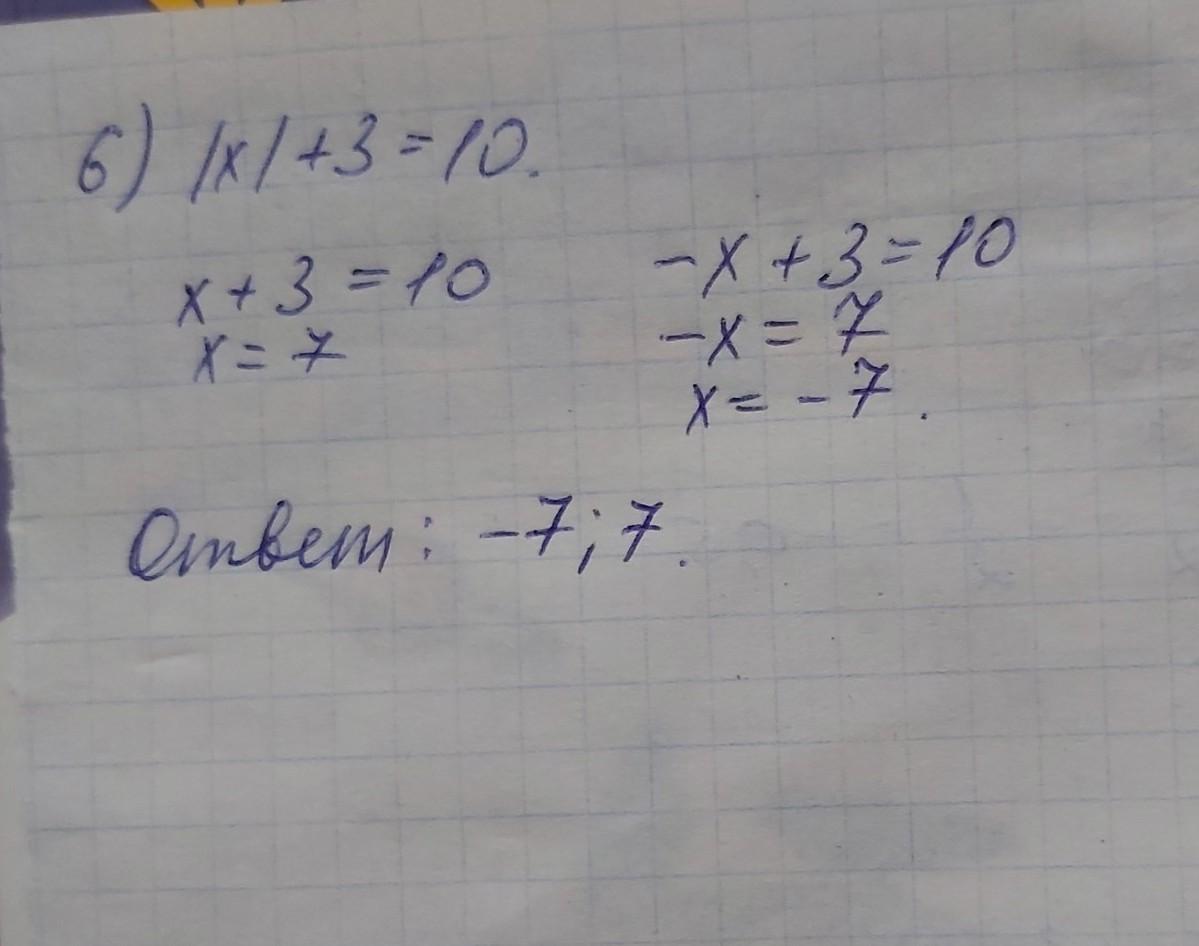 6) |x|+3=10.
x+3=10
x=7
-x+3=10
-x=7
x=-7.
Ответ: -7; 7.